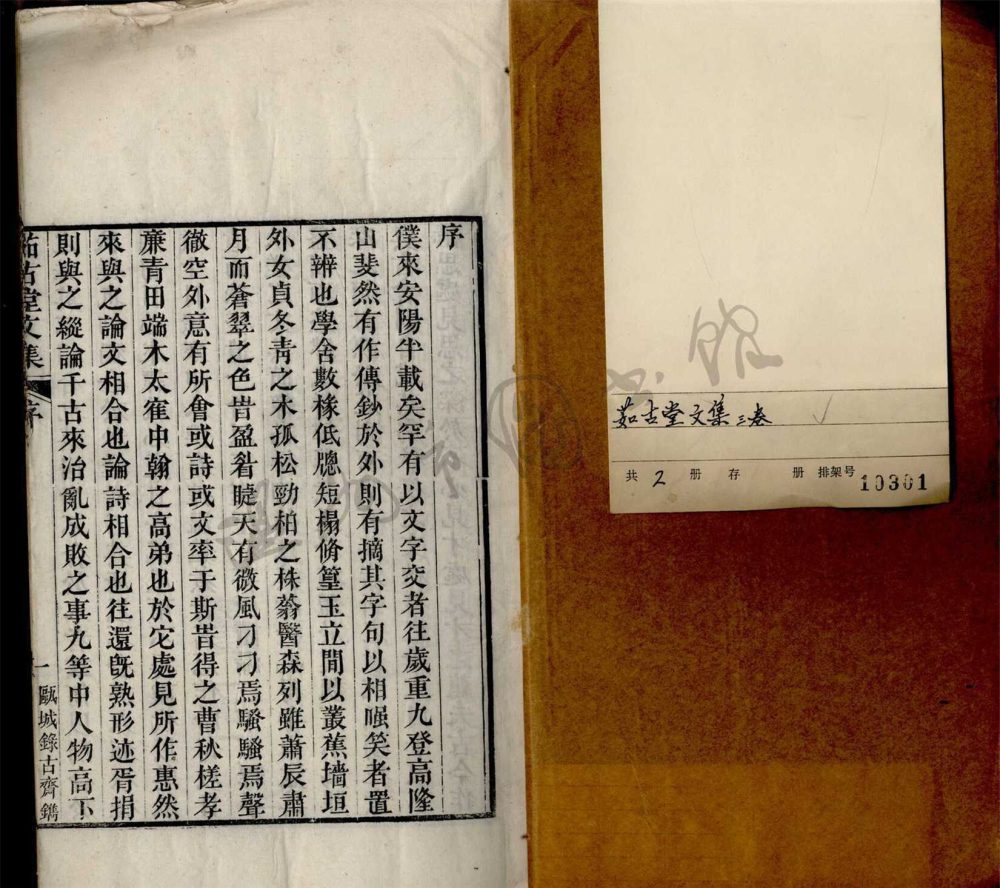 序
僕來安陽半載矣罕有以文字交者往歲重九登高隆
山斐然有作傳鈔於外則有摘其字句以相嗤笑者置
不辨也學舍數椽低牕短榻脩篁玉立間以叢蕉墻垣
外女貞冬青之木孤松勁柏之株蓊翳森列雖蕭辰肅
月而蒼翠之色眥盈眥睫天有微風刁刁焉騷騷焉聲
徹空外意有所會或詩或文率于斯眥得之曹秋槎孝
廉青田端木太隺中翰之高弟也於它處見所作惠然
來與之論文相合也論詩相合也往還旣熟形迹胥捐
則與之縱論千古來治亂成敗之事九等中人物高下
茹古堂文集
序
一
甌城錄古齋鐫
茹古堂文集 三卷
共 2 册 存 册 排架号 10301